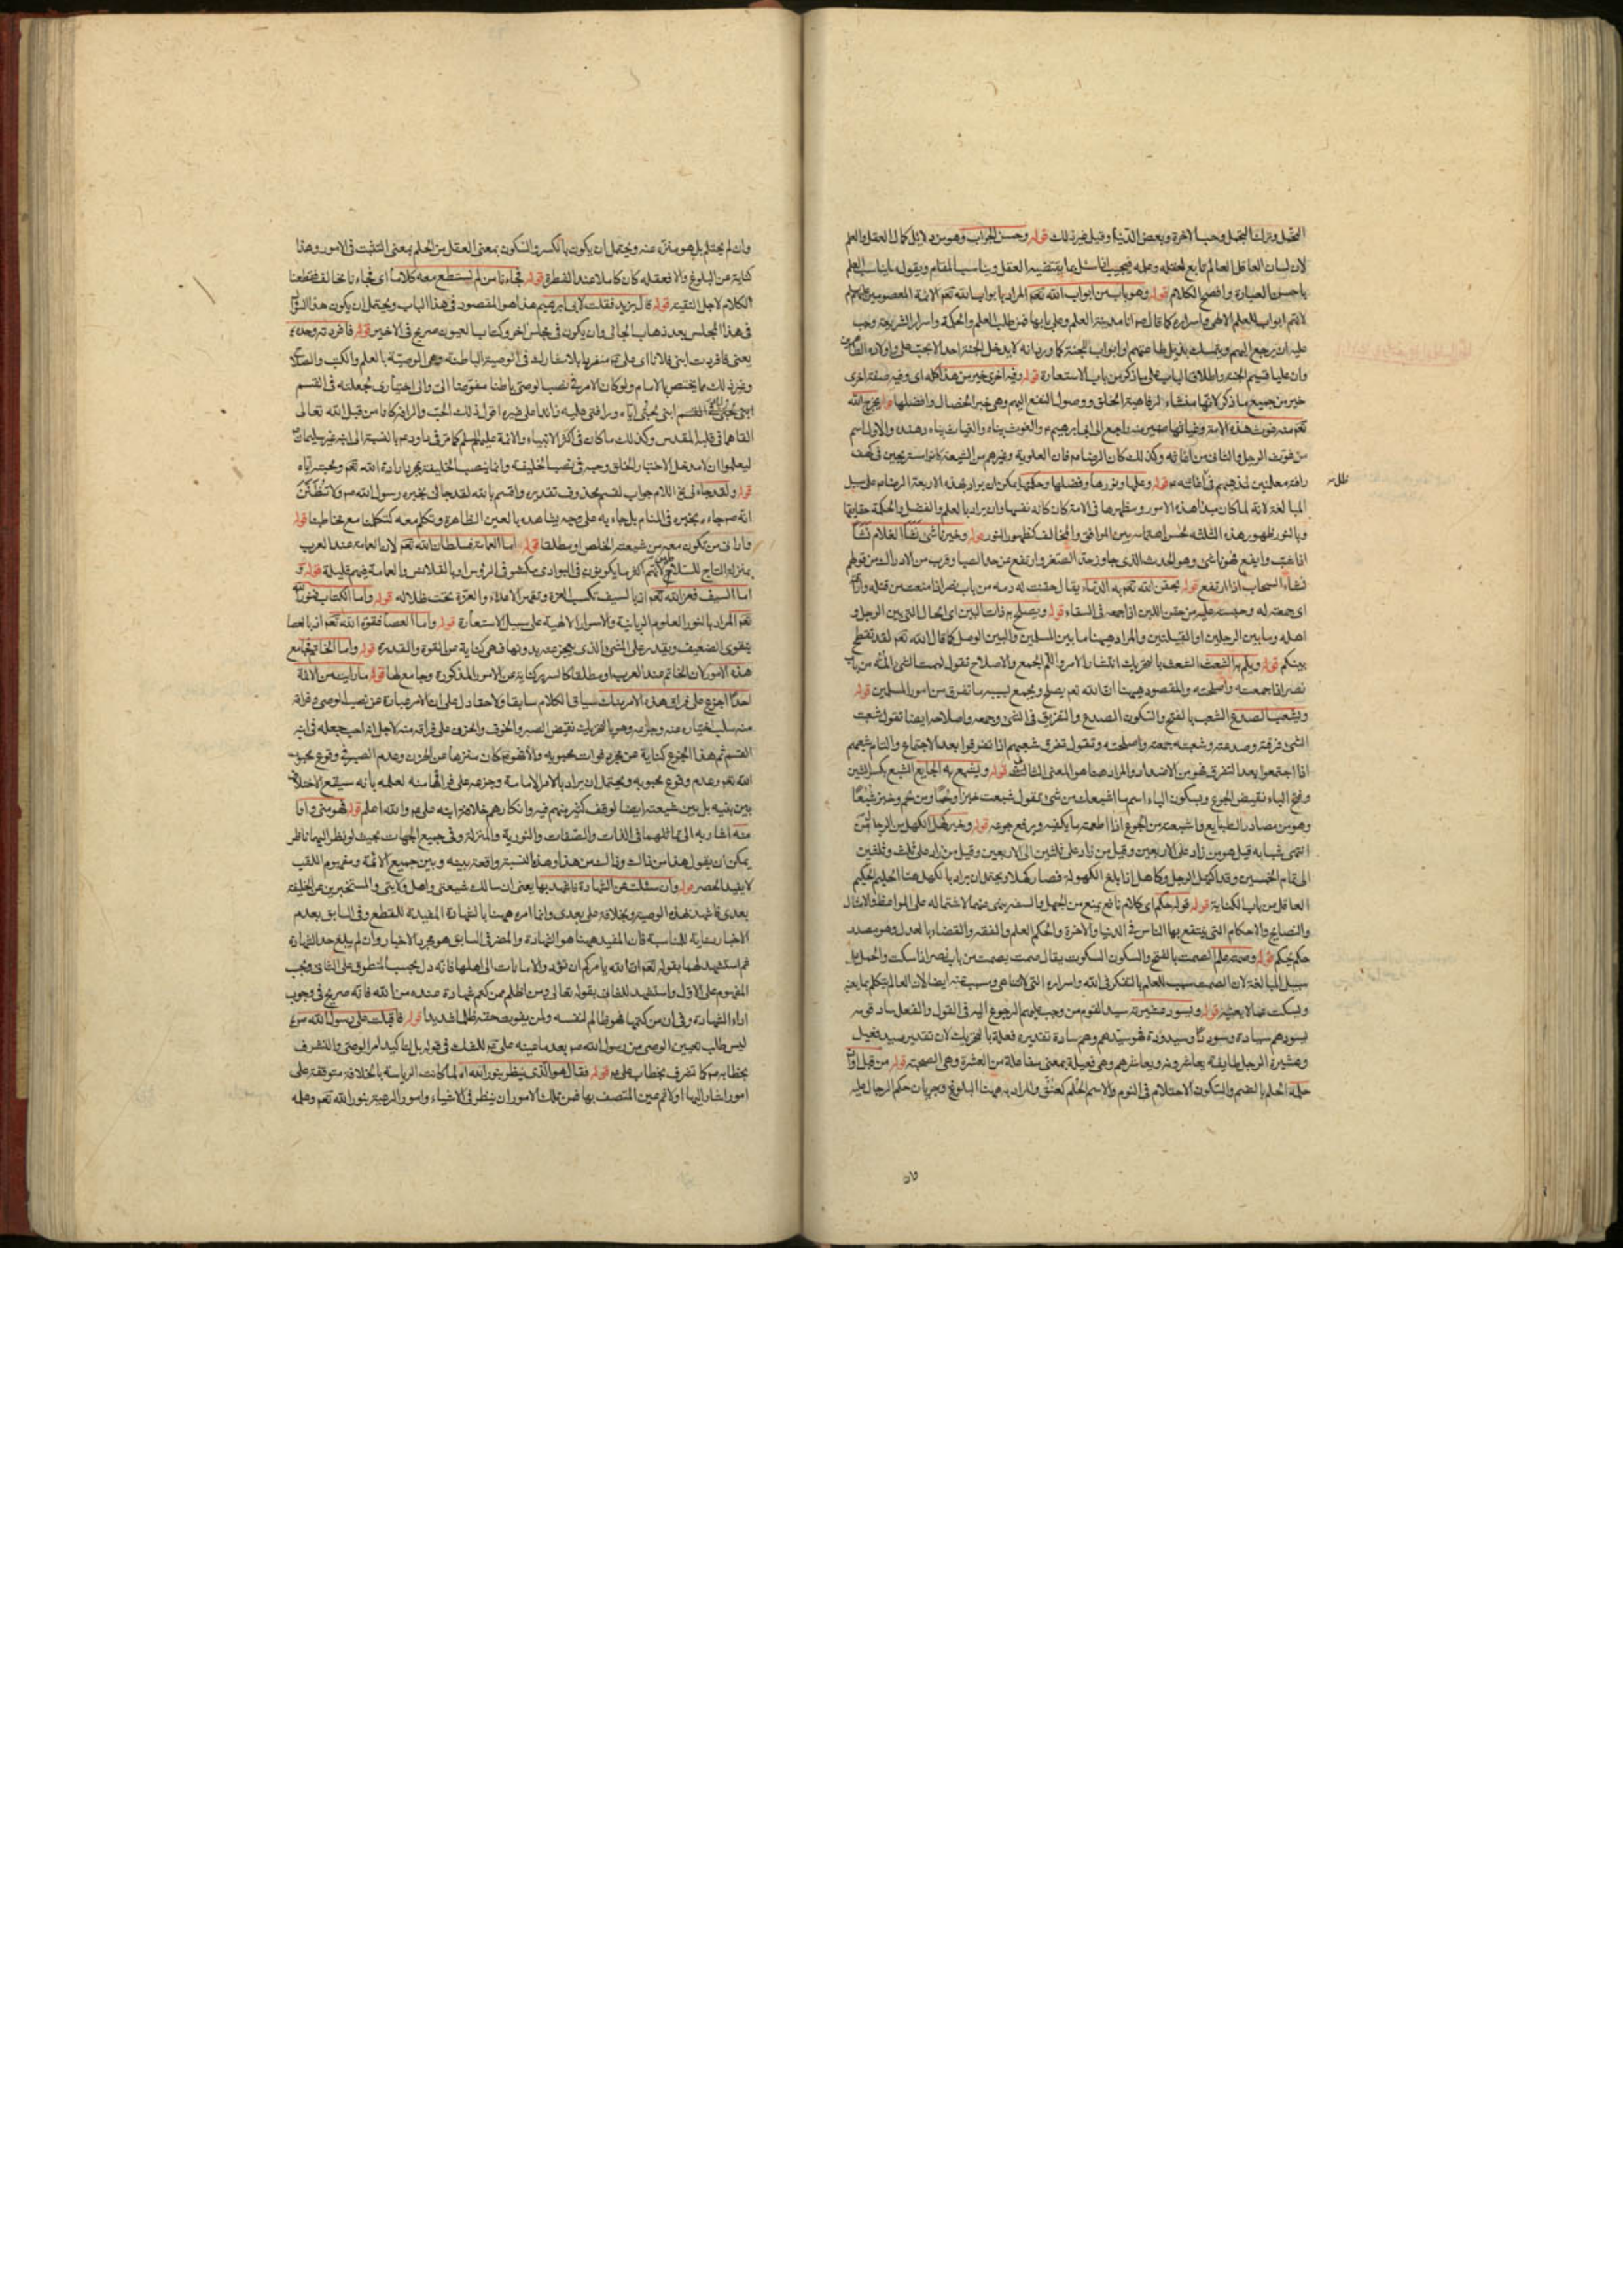 البخل وترك البخل وحب الاخرة وبغض الدنيا وقيل غير ذلك قوله وحسن الجواب وهو من دلايل كمال العقل والعلم
لان لسان العاقل العالم تابع لعقله وعلمه فيجيب اذا سئل بما يقتضيه العقل ويناسب المقام ويقوله بما يناسب العلم
باحسن العبارة وافصح الكلام قوله وهو باب من ابواب الله تعم المراد بابواب الله تعم الائمة المعصومين
لانهم ابواب للعلم الالهى واسراره كما قال ص انا مدينة العلم وعلى بابها فمن طلب العلم والحكمة واسرار الشريعة وجب
عليه ان يرجع اليهم وابواب للجنة كما روى انه لا يدخل الجنة احد الا بحب على واولاده
وان عليا قسيم الجنة واطلاق الباب على ما ذكر من باب الاستعارة قوله وفيه اخرى خير من هذا كله اى وفيه صفة اخرى
خير من جميع ما ذكر لانها منشاء لرفاهية الخلق ووصول النفع اليهم وهى خير الخصال وافضلها قوله يخرج الله
تعم منه غوث هذه الامة وغياثها ضمير منه راجع الى ابى ابرهيم ع والغوث بناء والغياث بناء وهذه والاول اسم
من غوث الرجل والثانى من اغاثه وكذلك كان الرضا ع فان العلوية وغيرهم من الشيعة كانوا مستريحين فى كهف
رافته قوله وعلمها ونورها وفضلها وحكمتها يمكن ان يراد بهذه الاربعة الرضا ع على سبيل
المبالغة لانه لما كان مبدأ هذه الامور ومظهرها فى الامة كان كانه نفسها وان يراد بالعلم والفضل والحكمة حقايقها
وبالنور ظهور هذه الثلثة بين الموافق والمخالف كظهور النور قوله وخير ناشئ نشأ الغلام نشأ
اذا شب وايفع فهو ناشئ وهو الحدث الذى جاوز حد الصغر وارتفع عن حد الصبا وقرب من الادراك من قولهم
نشاء السحاب اذا ارتفع قوله يحقن الله تعم به الدماء يقال حقنت له دمه من باب نصر اذا منعت من قتله
اى جمعته له وحبسته عليه من حقن اللبن اذا جمعه فى السقاء قوله ويصلح به ذات البين اى الحال التى بين الرجل و
اهله وما بين الرجلين او القبيلتين والمراد هيهنا ما بين المسلمين والبين الوصل كما قال الله تعم لقد تقطع
بينكم قوله ويلم به الشعث الشعث بالتحريك انتشار الامر واللم الجمع والاصلاح تقول لممت الشئ المه من باب
نصر اذا جمعته واصلحته والمقصود هيهنا ان الله تعم يصلح ويجمع بسببه ما تفرق من امور المسلمين قوله
ويشعب الصدع الشعب بالفتح والسكون الصدع والتفريق فى الشئ وجمعه واصلاحه ايضا تقول شعبت
الشئ فرقته وصدعته وشعبته جمعته واصلحته وتقول تفرق شعبهم اذا تفرقوا بعد الاجتماع والتام شعبهم
اذا اجتمعوا بعد التفرق فهو من الاضداد والمراد هنا هو المعنى الثانى قوله ويشبع به الجايع الشبع بكسر الشين
وفتح الباء نقيض الجوع وبسكون الباء اسم ما اشبعك من شئ تقول شبعت خبزا ولحما ومن لحم وخبز شبعا
وهو من مصادر الطبايع واشبعته من الجوع اذا اطعمته ما يكفيه ويرفع جوعه قوله وخير كهل الكهل من الرجال من
انتهى شبابه قيل هو من زاد على الاربعين وقيل من زاد على ثلثين الى الاربعين وقيل من زاد على ثلث وثلثين
الى تمام الخمسين وقد اكتهل الرجل وكاهل اذا بلغ الكهولة فصار كهلا ويحتمل ان يراد بالكهل هنا الحليم الحكيم
العاقل من باب الكناية قوله قوله حكم اى كلام نافع يمنع من الجهل والسفه وينهى عنهما لاشتماله على المواعظ والامثال
والنصايح والاحكام التى ينتفع بها الناس فى الدنيا والاخرة والحكم العلم والفقه والقضاء بالعدل وهو مصدر
حكم يحكم قوله وصمته علم الصمت بالفتح والسكون السكوت يقال صمت يصمت من باب نصر اذا سكت والحمل على
سبيل المبالغة لان الصمت سبب للعلم بالتفكر فى الله واسراره ايضا لان العالم يتكلم بما يعنيه
ويسكت عما لا يعنيه قوله ويسود عشيرته سيد القوم من وجب عليهم الرجوع اليه فى القول والفعل ساد قومه
يسودهم سيادة وسوددا وسيدودة فهو سيدهم وهم سادة تقديره فعلة بالتحريك لان تقدير سيد فعيل
وعشيرة الرجل طايفته يعاشرونه ويعاشرهم وهى فعيلة بمعنى مفاعلة من العشرة وهى الصحبة قوله من قبل اوان
حلمه الحلم بالضم والسكون الاحتلام فى النوم والاسم الحلم كعنق والمراد به هيهنا البلوغ وجريان حكم الرجال عليه
وان
وان لم يحتلم بل هو منزه عنه ويحتمل ان يكون بالكسر والسكون بمعنى العقل من الحلم بمعنى التثبت فى الامور وهذا
كناية عن البلوغ والا فعقله كان كاملا عند الفطرة قوله فجاءنا من لم يستطع معه كلاما اى فجاءنا مخالف فقطعنا
الكلام لاجل التقية قوله قال يزيد فقلت لابى ابرهيم هذا هو المقصود فى هذا الباب ويحتمل ان يكون هذا السؤال
فى هذا المجلس بعد ذهاب الجائى وان يكون فى مجلس اخر وكتاب العيون صريح فى الاخير قوله فافردته وحده
يعنى فافردت ابنى فلانا اى على ع منفردا بلا مشارك فى الوصية الباطنة وهى الوصية بالعلم والكتب والسلاح
وغير ذلك مما يختص بالامام ولو كان الامر فى نصب الوصى باطنا مفوضا الى والى اختيارى لجعلته فى القسم
ابنى لحبى اياه ورافتى عليه زائدا على غيره اقول ذلك الحب والرافة كانا من قبل الله تعالى
القاهما فى قلبه المقدس وكذلك ما كان فى اكثر الانبياء والائمة عليهم السلم كما مر فى داود ع بالنسبة الى ابنه غير سليمان
ليعلموا ان لا مدخل لاختيار الخلق وحبه فى نصب الخليفة وانما نصب الخليفة يجرى بارادة الله تعم ومحبته اياه
قوله ولقد جاءنى بخبره اللام جواب لقسم محذوف تقديره واقسم بالله لقد جاءنى بخبره رسول الله ص ولا تظنن
انه ص جاءه بخبره فى المنام بل جاء به على وجه يشاهده بالعين الظاهرة ويتكلم معه كتكلمنا مع مخاطبنا قوله
وارانى من تكون معه من شيعته الخلص او مطلقا قوله اما العمامة فسلطان الله تعم لان العمامة عند العرب
بمنزلة التاج للسلاطين لانهم اكثر ما يكونون فى البوادى مكشوفى الرؤس او بالقلانس والعمامة فيهم قليلة قوله و
اما السيف فعز الله تعم اذ بالسيف تكسب العزة وتقهر الاعداء والعزة تحت ظلاله قوله واما الكتاب فنور الله
تعم المراد بالنور العلوم الربانية والاسرار الالهية على سبيل الاستعارة قوله واما العصا فقوة الله تعم اذ بالعصا
يتقوى الضعيف ويقدر على المشى والذى يعجز عنه بدونها فهى كناية عن القوة والقدرة قوله واما الخاتم فجامع
هذه الامور لان الخاتم عند العرب او مطلقا كانه كناية عن الامور المذكورة وجامع لها قوله ما رايت من الائمة
احدا اجزع على فراق هذا الامر منك سياق الكلام سابقا ولاحقا دل على ان الامر عبارة عن نصب الوصى وفراقه
منه سلب اختياره عنه وجزعه وهو بالتحريك نقيض الصبر والخوف والحزن على فراقه منه لاجل انه احب جعله فى ابنه
القسم ثم هذا الجزع كناية عن مجرد فوات محبوبه والا فهو ع كان منزها عن الحزن وعدم الصبر فى وقوع محبوب
الله تعم وعدم وقوع محبوبه ويحتمل ان يراد بالامر الامامة وجزعه على فراقها منه لعلمه بانه سيقع الاختلاف
بين بنيه بل بين شيعته ايضا لوقف كثير منهم فيه وانكارهم خلافة ابنه على ع والله اعلم قوله فهو منى وانا
منه اشار به الى تماثلهما فى الذات والصفات والنورية والمنزلة وفى جميع الجهات بحيث لو نظر اليهما ناظر
يمكن ان يقول هذا من ذاك وذاك من هذا وهذه النسبة واقعة بينه وبين جميع الائمة ومفهوم اللقب
لا يفيد الحصر قوله وان سئلت عن الشهادة فاشهد بها يعنى ان سالك شيعتى واهل ولايتى والمستخبرين عن الخليفة
بعدى فاشهد بهذه الوصية وبخلافة على بعدى وانما امره هيهنا بالشهادة المفيدة للقطع وفى السابق بعدم
الاخبار رعاية للمناسبة فان المفيد هيهنا هو الشهادة والمضر فى السابق هو مجرد الاخبار وان لم يبلغ حد الشهادة
ثم استشهد لهما بقوله تعم ان الله يامركم ان تؤدوا الامانات الى اهلها فانه دل بحسب المنطوق على الثانى وبحسب
المفهوم على الاول واستشهد للثانى بقوله تعالى ومن اظلم ممن كتم شهادة عنده من الله فانه صريح فى وجوب
اداء الشهادة وفى ان من كتمها فهو ظالم لنفسه ولمن يفوت حقه ظلما شديدا قوله فاقبلت على رسول الله ص
ليس طلب تعيين الوصى من رسول الله ص بعد ما عينه على ع للشك فى قوله بل لتاكيد امر الوصى والتشرف
بخطابه ص كما تشرف بخطاب على ع قوله فقال هو الذى ينظر بنور الله اه لما كانت الرياسة بالخلافة متوقفة على
امور اشار اليها اولا ثم عين المتصف بها فمن تلك الامور ان ينظر فى الاشياء وامور الرعية بنور الله تعم وعلمه